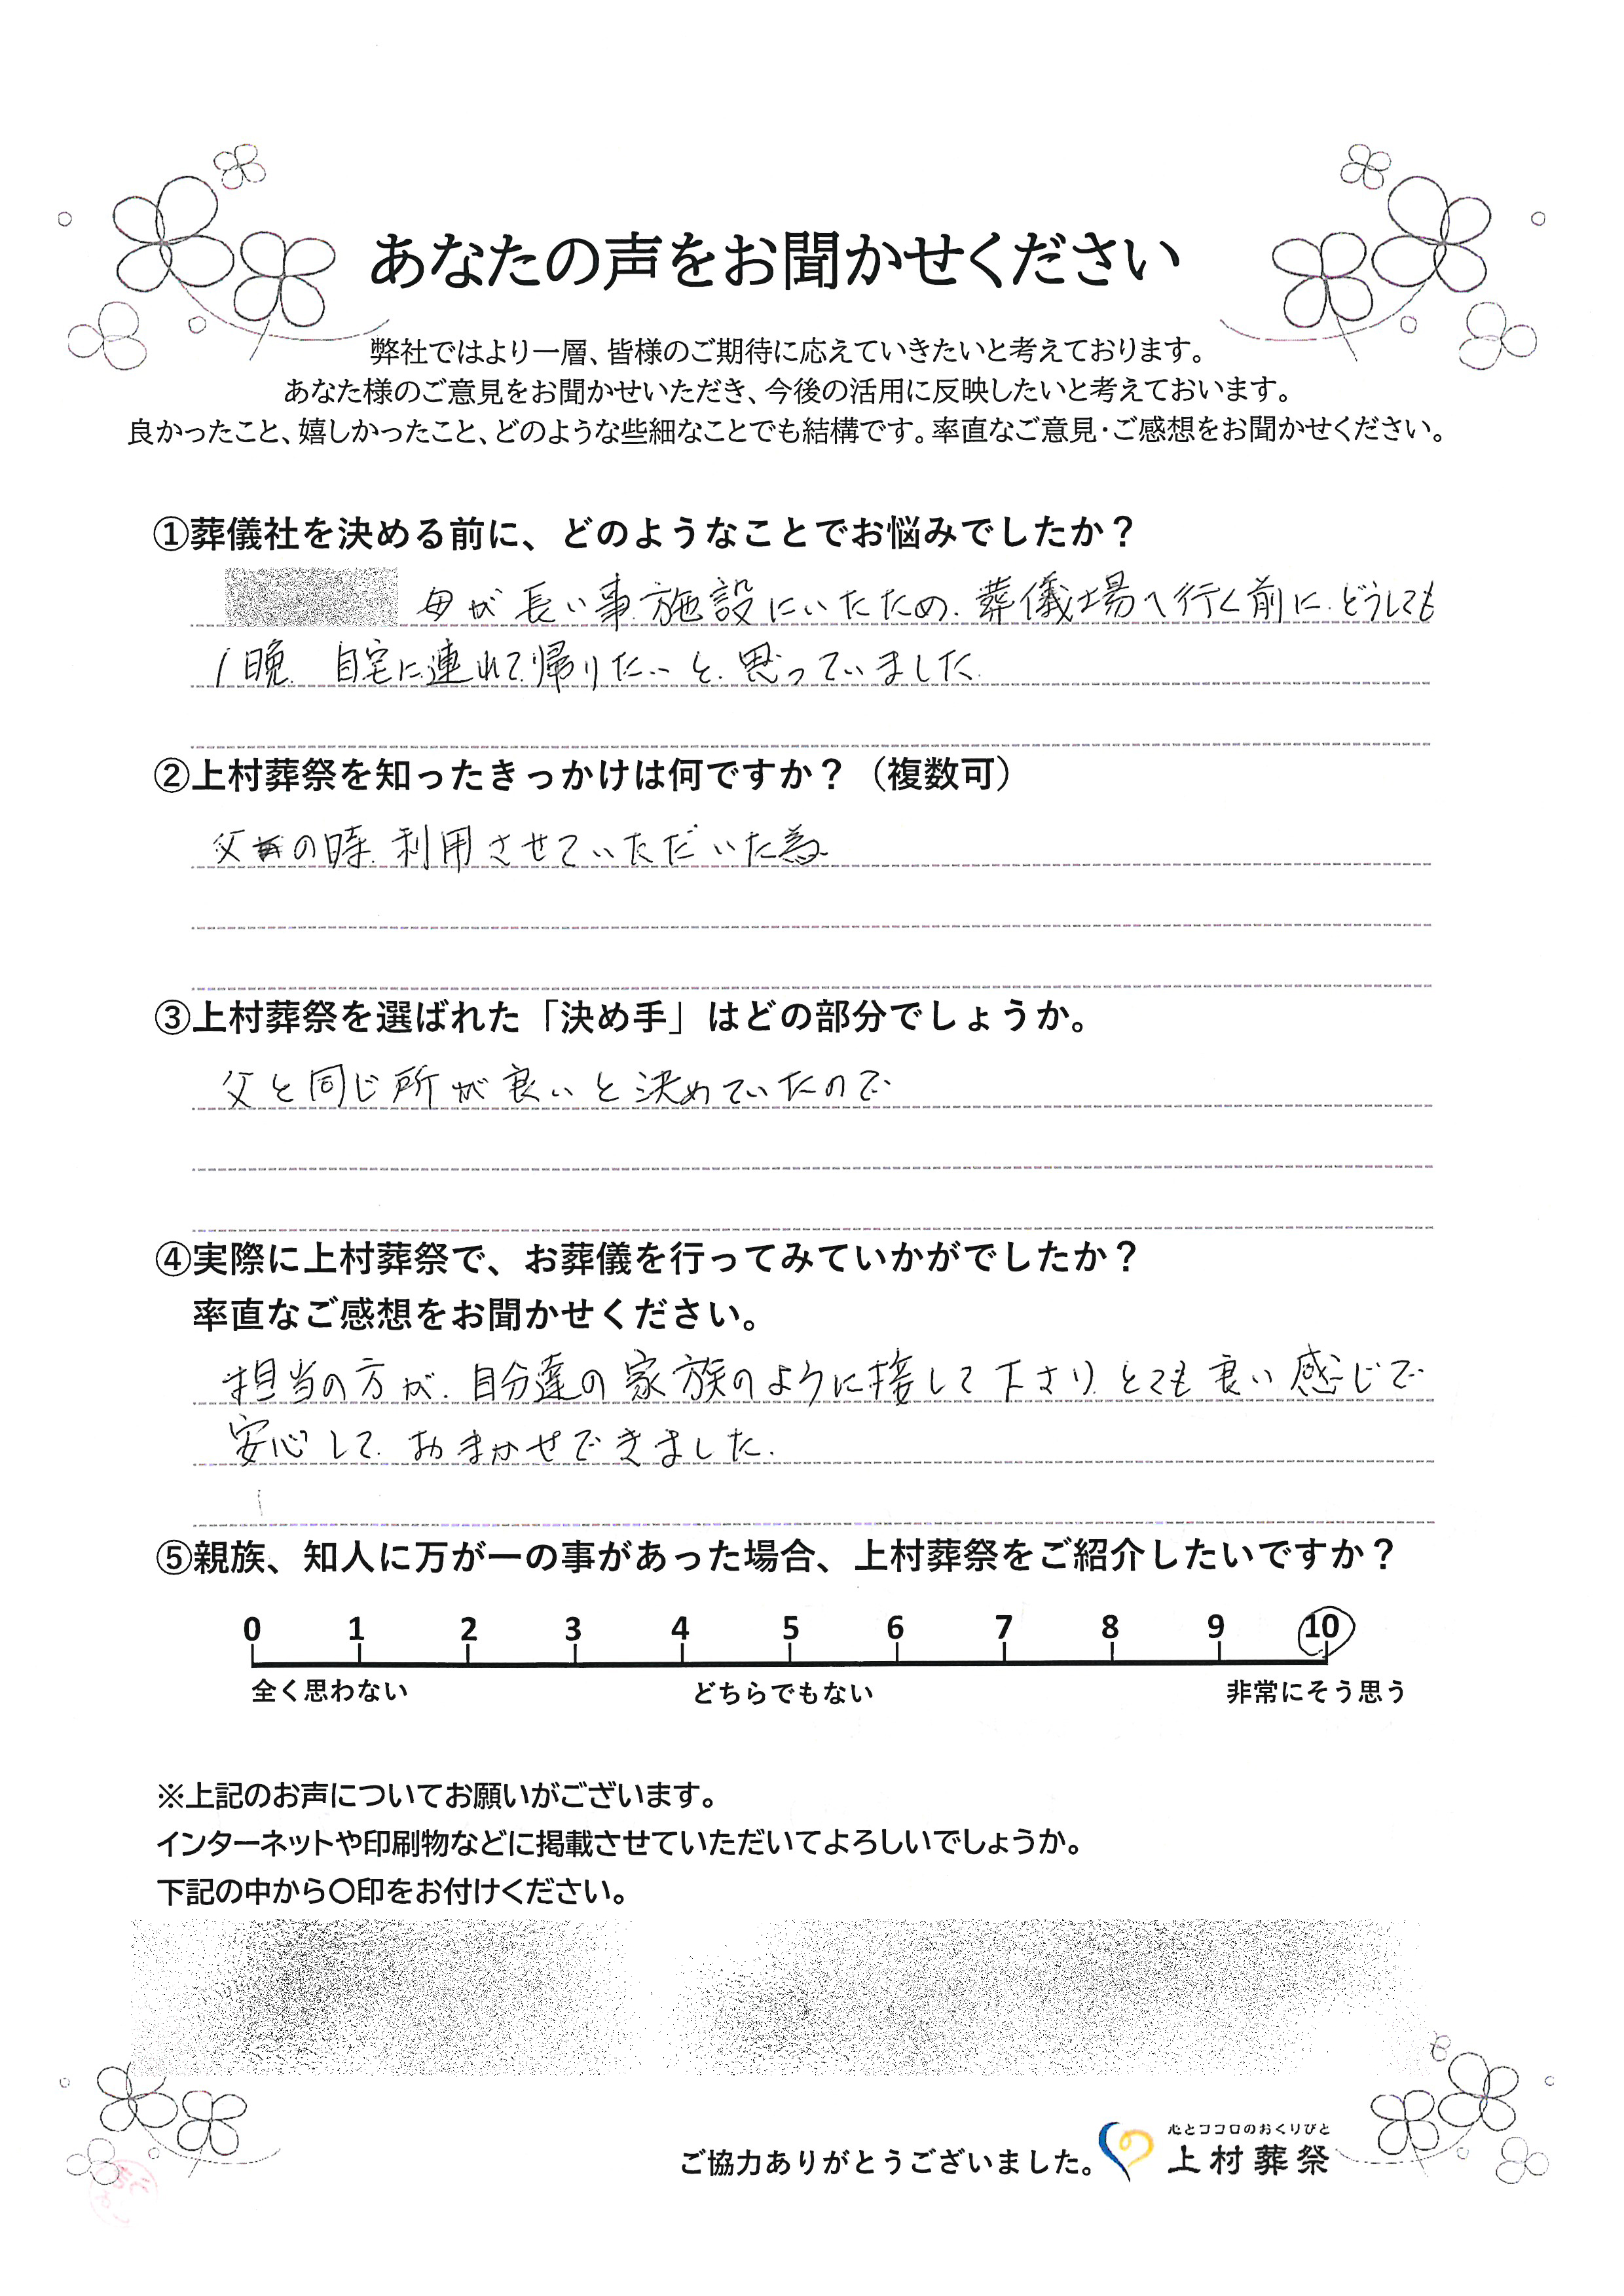 あなたの声をお聞かせください
弊社ではより一層、皆様のご期待に応えていきたいと考えております。
あなた様のご意見をお聞かせいただき、今後の活用に反映したいと考えておいます。
良かったこと、嬉しかったこと、どのような些細なことでも結構です。率直なご意見・ご感想をお聞かせください。
①葬儀社を決める前に、どのようなことでお悩みでしたか？
母が長い事施設にいたため.葬儀場へ行く前に.どうしても
1晩.自宅に連れて帰りたいと.思っていました.
②上村葬祭を知ったきっかけは何ですか？（複数可）
父の時.利用させていただいた為
③上村葬祭を選ばれた「決め手」はどの部分でしょうか。
父と同じ所が良いと決めていたので
④実際に上村葬祭で、お葬儀を行ってみていかがでしたか？
率直なご感想をお聞かせください。
担当の方が.自分達の家族のように接して下さり.とても良い感じで
安心して.おまかせできました.
⑤親族、知人に万が一の事があった場合、上村葬祭をご紹介したいですか？
0 1 2 3 4 5 6 7 8 9 10
全く思わない どちらでもない 非常にそう思う
※上記のお声についてお願いがございます。
インターネットや印刷物などに掲載させていただいてよろしいでしょうか。
下記の中から〇印をお付けください。
心とココロのおくりびと
ご協力ありがとうございました。 上村葬祭